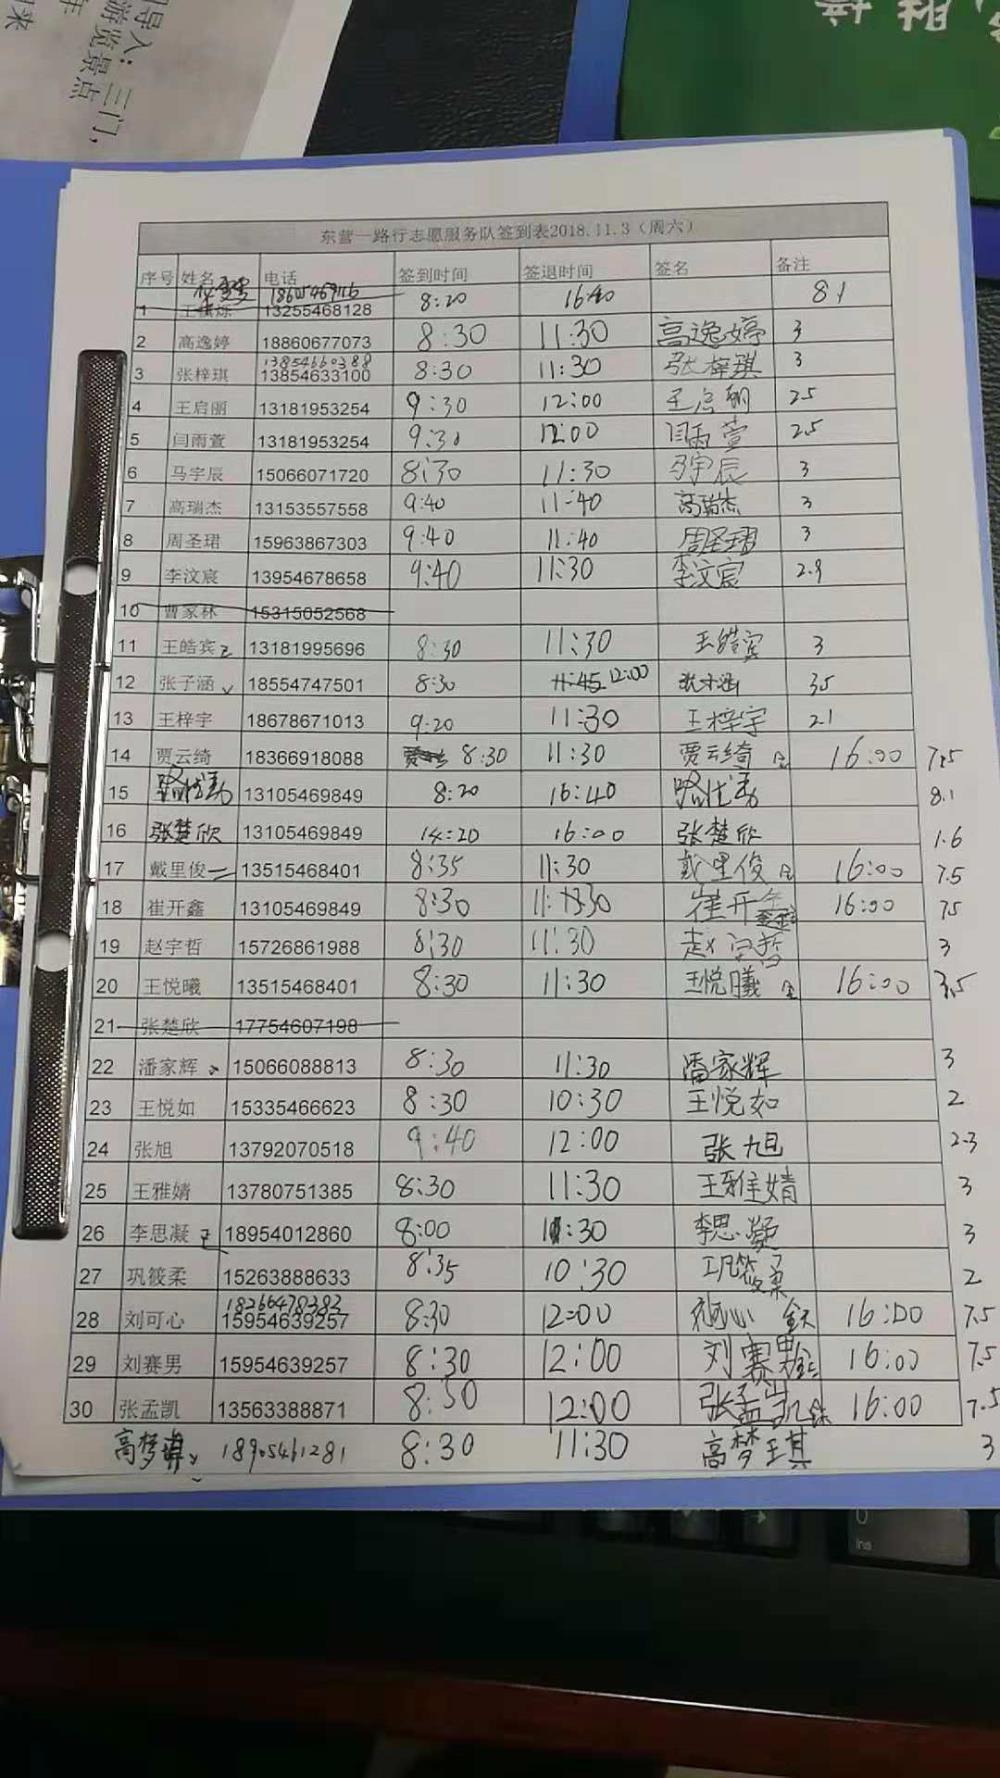 导入：三门，
游览景点
东营一路行志愿服务队签到表2018.11.3（周六）
序号 姓名 电话 签到时间 签退时间 签名 备注
1 13255468128 8:20 16:40 8.1
2 高逸婷 18860677073 8:30 11:30 高逸婷 3
13854660388
3 张梓琪 13854633100 8:30 11:30 张梓琪 3
4 王启丽 13181953254 9:30 12:00 王启丽 2.5
5 闫雨萱 13181953254 9:30 12:00 闫雨萱 2.5
6 马宇辰 15066071720 8:30 11:30 马宇辰 3
7 高瑞杰 13153557558 9:40 11:40 高瑞杰 3
8 周圣珺 15963867303 9:40 11:40 周圣珺 3
9 李汶宸 13954678658 9:40 11:30 李汶宸 2.9
10 曹家林 15315052568
11 王皓宾 13181995696 8:30 11:30 王皓宾 3
12 张子涵 18554747501 8:30 11:45 12:00 张子涵 3.5
13 王梓宇 18678671013 9:20 11:30 王梓宇 2.1
14 贾云绮 18366918088 8:30 11:30 贾云绮 16:00 7.5
15 13105469849 8:20 16:40 8.1
16 张楚欣 13105469849 14:20 16:00 张楚欣 1.6
17 戴里俊 13515468401 8:35 11:30 戴里俊 16:00 7.5
18 崔开鑫 13105469849 8:30 11:30 崔开鑫 16:00 7.5
19 赵宇哲 15726861988 8:30 11:30 赵宇哲 3
20 王悦曦 13515468401 8:30 11:30 王悦曦 16:00 7.5
21 张楚欣 17754607198
22 潘家辉 15066088813 8:30 11:30 潘家辉 3
23 王悦如 15335466623 8:30 10:30 王悦如 2
24 张旭 13792070518 9:40 12:00 张旭 2.3
25 王雅婧 13780751385 8:30 11:30 王雅婧 3
26 李思凝 18954012860 8:00 11:30 李思凝 3
27 巩筱柔 15263888633 8:35 10:30 巩筱柔 2
18266478383
28 刘可心 15954639257 8:30 12:00 刘可心 16:00 7.5
29 刘赛男 15954639257 8:30 12:00 刘赛男 16:00 7.5
30 张孟凯 13563388871 8:30 12:00 张孟凯 16:00 7.5
高梦琪 18905461281 8:30 11:30 高梦琪 3
Ins